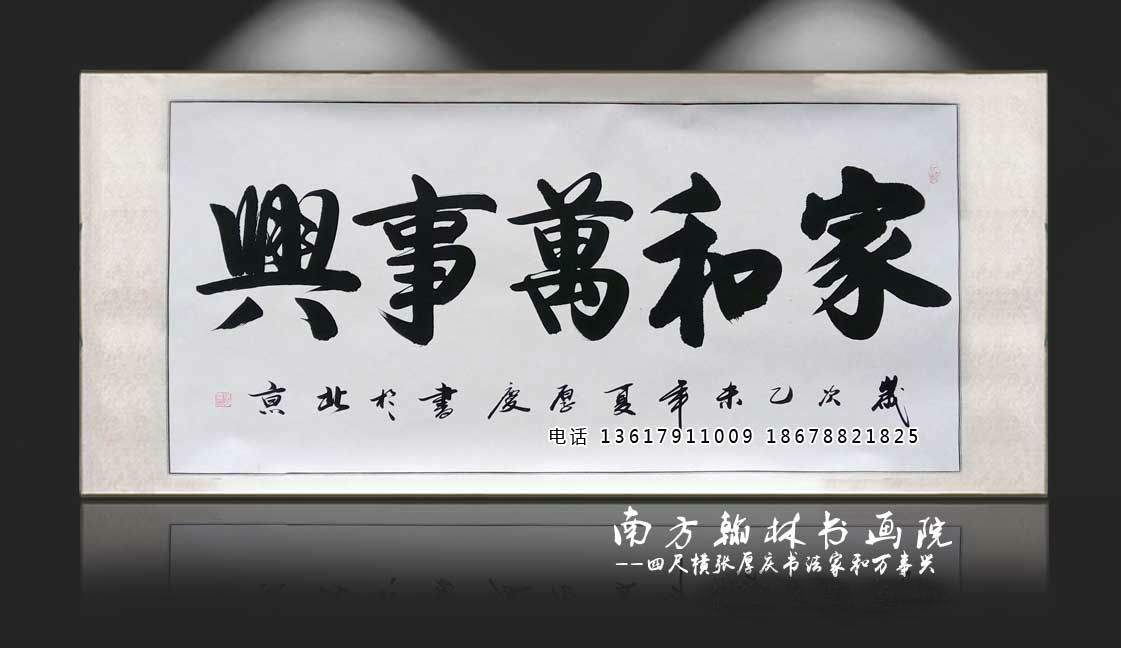 家和萬事興
歲次乙未年夏厚慶書於北京
电话 13617911009 18678821825
南方翰林书画院
--四尺横张厚庆书法家和万事兴